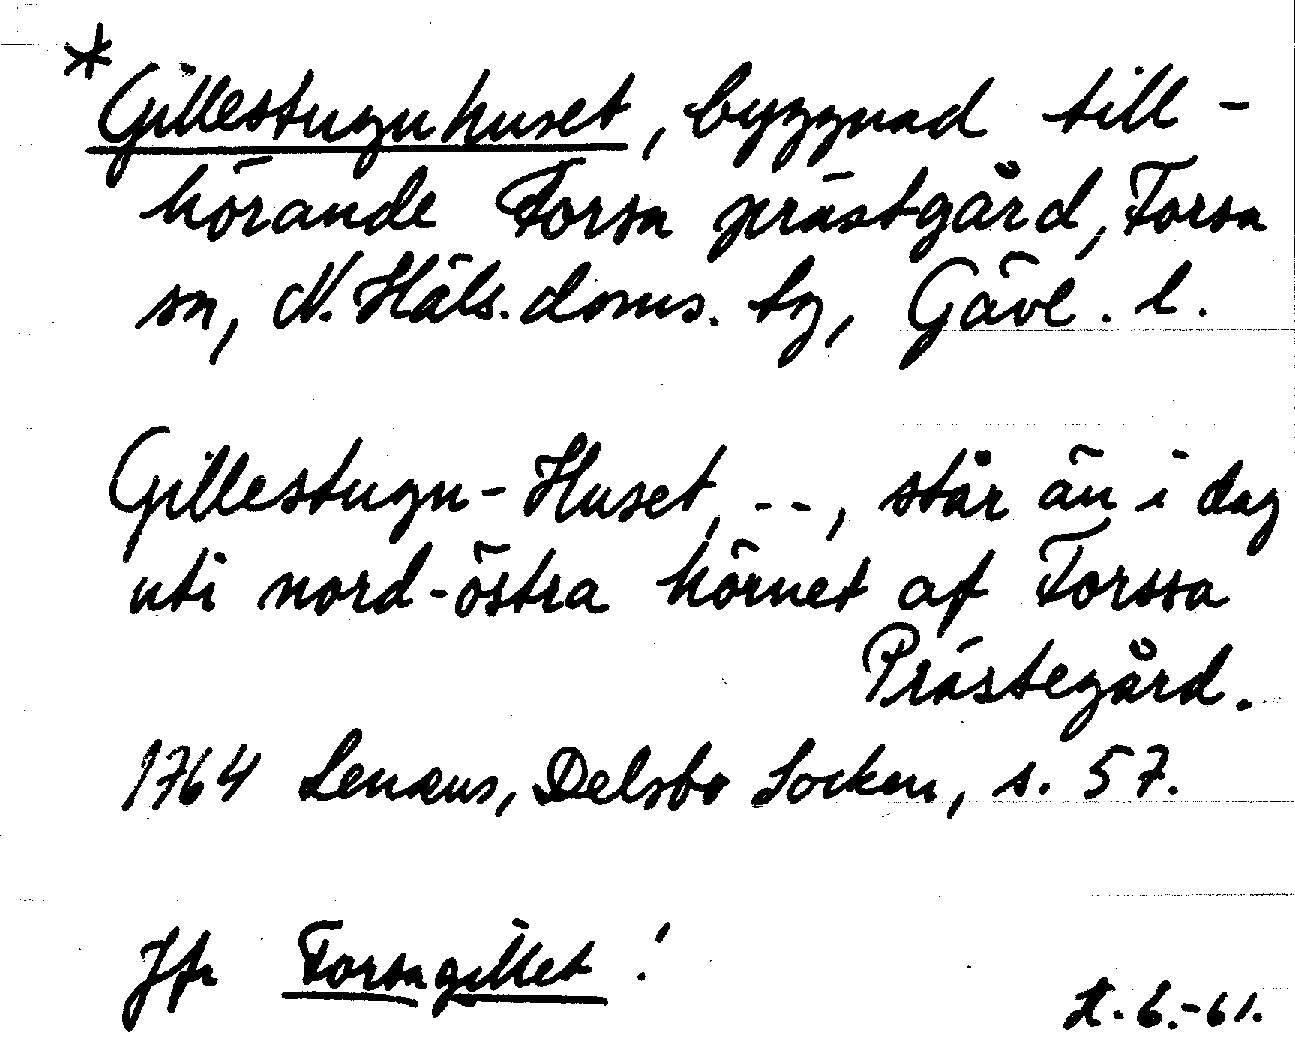 * Gillestuguhuset, byggnad till-
hörande Forsa prästgård, Forsa
sn, N. Häls. doms. tg, Gävl. l.
Gillestugu-Huset, --, står än i dag
uti nord-östra hörnet af Forssa
Prästegård.
1764 Lenæus, Delsbo Socken, s. 57.
Jfr Forsagillet!
6.-61.